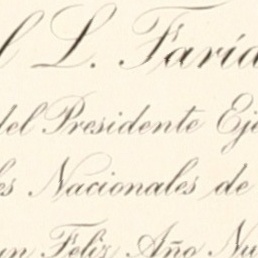 l L. Faría
del Presidente Eje
es Nacionales de
un Feliz Año Nu